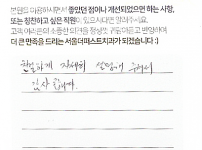 본원을 이용하시면서 좋았던 점이나 개선되었으면 하는 사항,
또는 칭찬하고 싶은 직원이 있으시다면 알려주세요.
고객 여러분의 소중한 의견을 정성껏 귀담아듣고 반영하여
더 큰 만족을 드리는 서울더퍼스트치과가 되겠습니다 :)
친절하게 자세히 설명해 주셔서
감사 합니다.